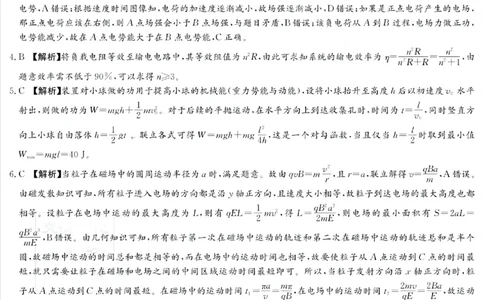 电势,A错误;根据速度时间图像知,电荷的加速度逐渐减小,故场强逐渐减小,D错误;如果是正点电荷产生的电场,
那正点电荷应该在右侧,则A点场强会小于B点场强,与题目矛盾,B错误;该负电荷从A到B过程,电场力做正功,
电势能减少,故在A点电势能大于在B点电势能,C正确。
4.B 【解析】将负载电阻等效至输电电路中,其等效阻值为n²R,由此可求知系统的输电效率为 η=n²R/(n²R+R)=n²/(n²+1),由
题意效率需不低于90%,可以求得n≥3。
5.C 【解析】装置对小球做的功用于提高小球的机械能(重力势能与动能),设将小球抬升至高度h后以初速度v₀水平
射出,则做的功为W=mgh+1/2mv₀²。对于后续的平抛运动,在水平方向上到达收集孔时,时间为t=l/v₀,同时竖直方
向上小球自由落体h=1/2gt²。联立各式可得W=mgh+mg l²/4h,这是一个对勾函数,当且仅当h=l/2时取到最小值
Wmin=mgl=40 J。
6.C 【解析】当粒子在磁场中的圆周运动半径为a时,满足题意。故由qvB=m v²/r,且r=a,联立解得v=qBa/m,A错误。
由磁发散知识可知,所有粒子进入电场的方向都是沿y轴正方向,且速度大小相等,故粒子到达电场的最大高度也都
相等。设粒子在电场中运动的最大高度为L,则有qEL=1/2mv²,得L=qB²a²/2mE,则电场的最小面积有S=2aL=
qB²a³/mE,B错误。由几何知识可知,所有粒子第一次在磁场中运动的轨迹和第二次在磁场中运动的轨迹总和是半个
圆,故磁场中运动的时间总和都是相等的,而在电场中的运动时间也相等,故要使粒子从A点运动到C点的时间最
短,就只需要让粒子在磁场和电场之间的中间区域运动时间最短即可。所以,当粒子发射方向沿x轴正方向时,粒
子从A点运动到C点的时间最短。在磁场中的运动时间t₁=πa/v=πm/qB,在电场中的运动时间t₂=2mv/qE=2Ba/E,故运动